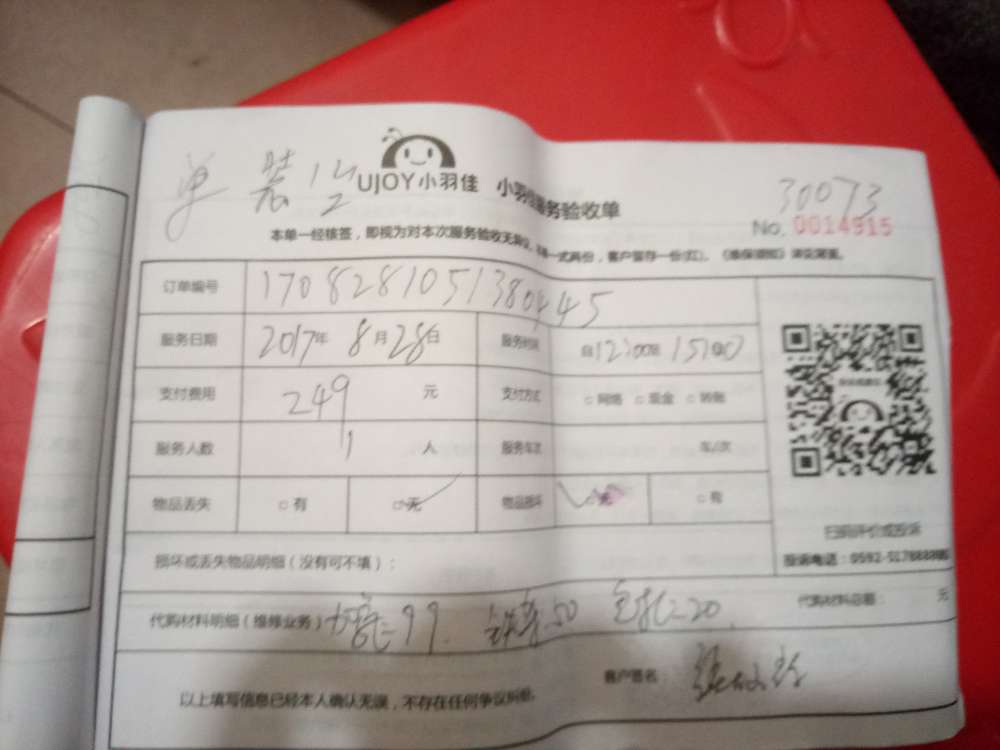 单 装
UJOY小羽佳 小羽佳服务验收单
30073
No. 0014915
本单一经核签，即视为对本次服务验收无异议。本单一式两份，客户留存一份(红)。《维保须知》详见背面。
订单编号 1708281051380445
服务日期 2017年 8月28日 服务时间 自12:00至15:00
支付费用 249 元 支付方式 □网络 □现金 □转账
服务人数 1 人 服务车次 车/次
物品丢失 □有 □无 物品损坏 □无 □有
扫码评价或投诉
投诉电话：0592-5178888
损坏或丢失物品明细（没有可不填）：
代购材料明细（维修业务） 99 50 20 代购材料总额： 元
客户签名：
以上填写信息已经本人确认无误，不存在任何争议纠纷。